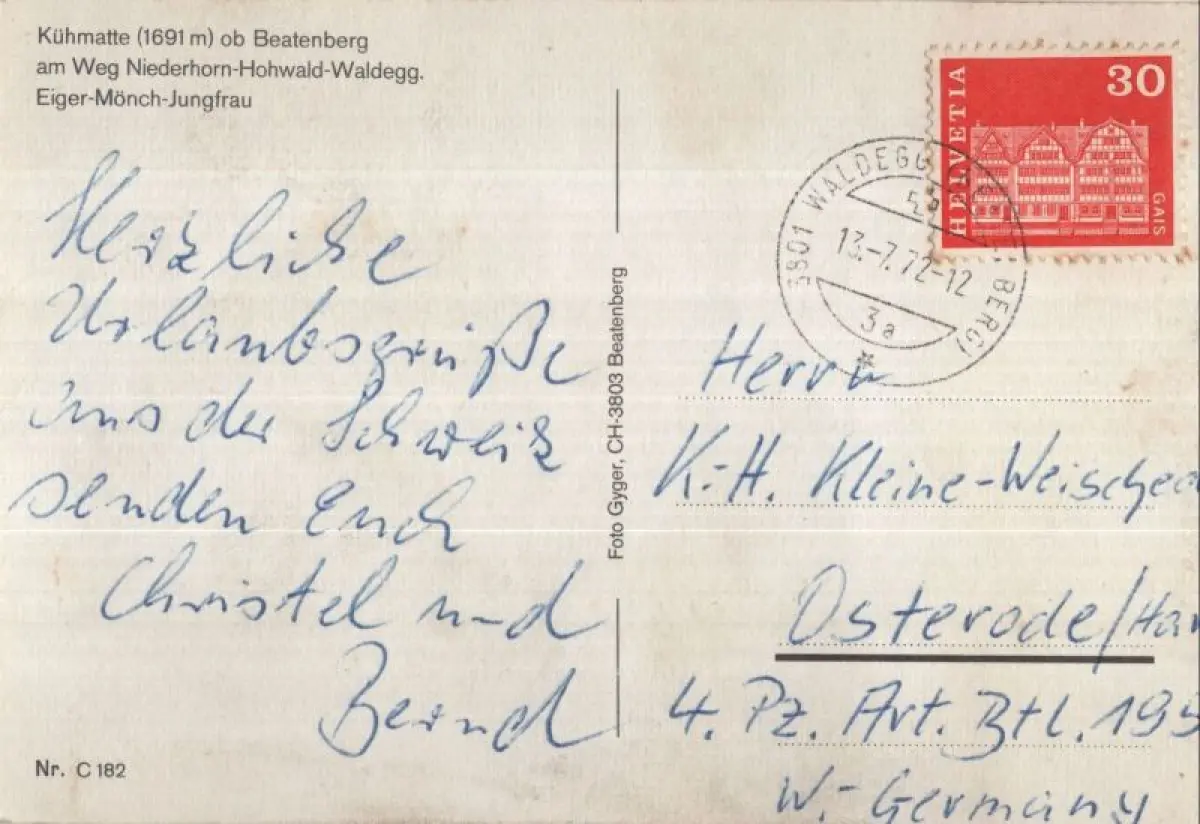 Kühmatte (1691 m) ob Beatenberg
am Weg Niederhorn-Hohwald-Waldegg.
Eiger-Mönch-Jungfrau
Herzliche
Urlaubsgrüße
aus der Schweiz
senden Euch
Christel und
Bernd
Nr. C 182
Foto Gyger, CH-3803 Beatenberg
HELVETIA
30
GAIS
3801 WALDEGG BERG)
13.-7.72-12
3a
Herrn
K.-H. Kleine-Weische
Osterode/Har
4. Pz. Art. Btl. 19
W.-Germany